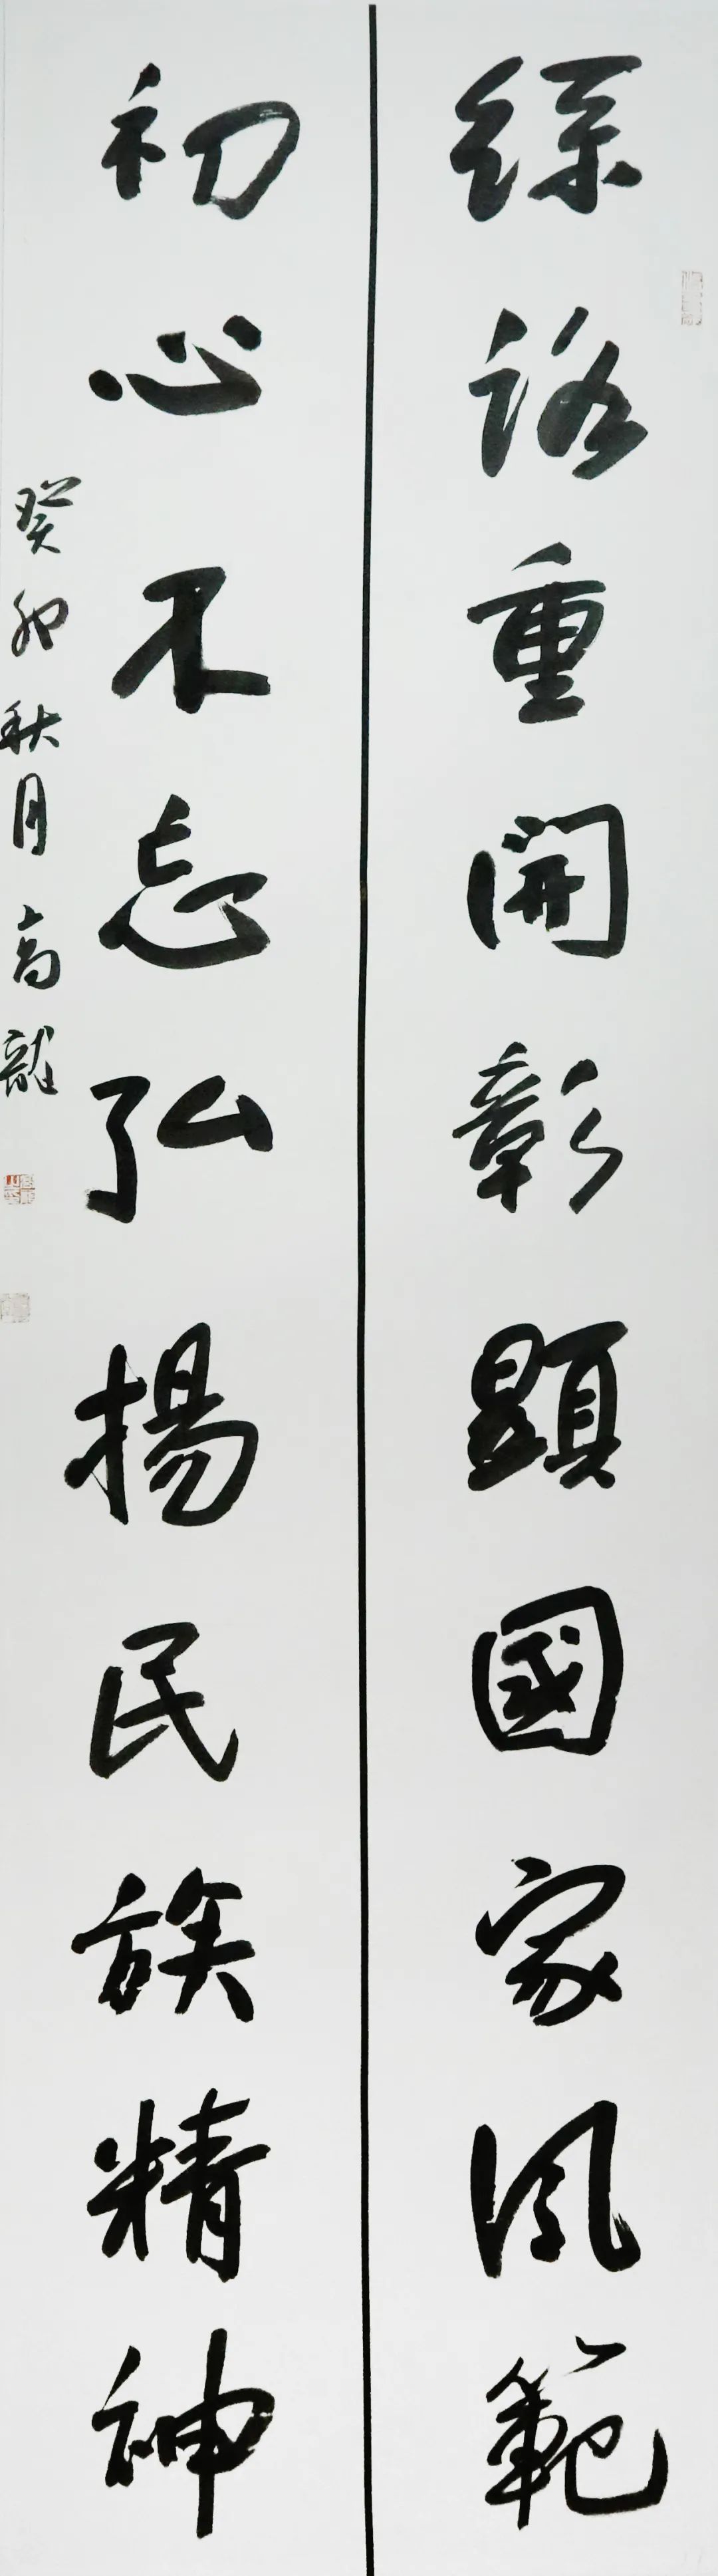 絲路重開彰顯國家風範
初心不忘弘揚民族精神
癸卯秋月高龍